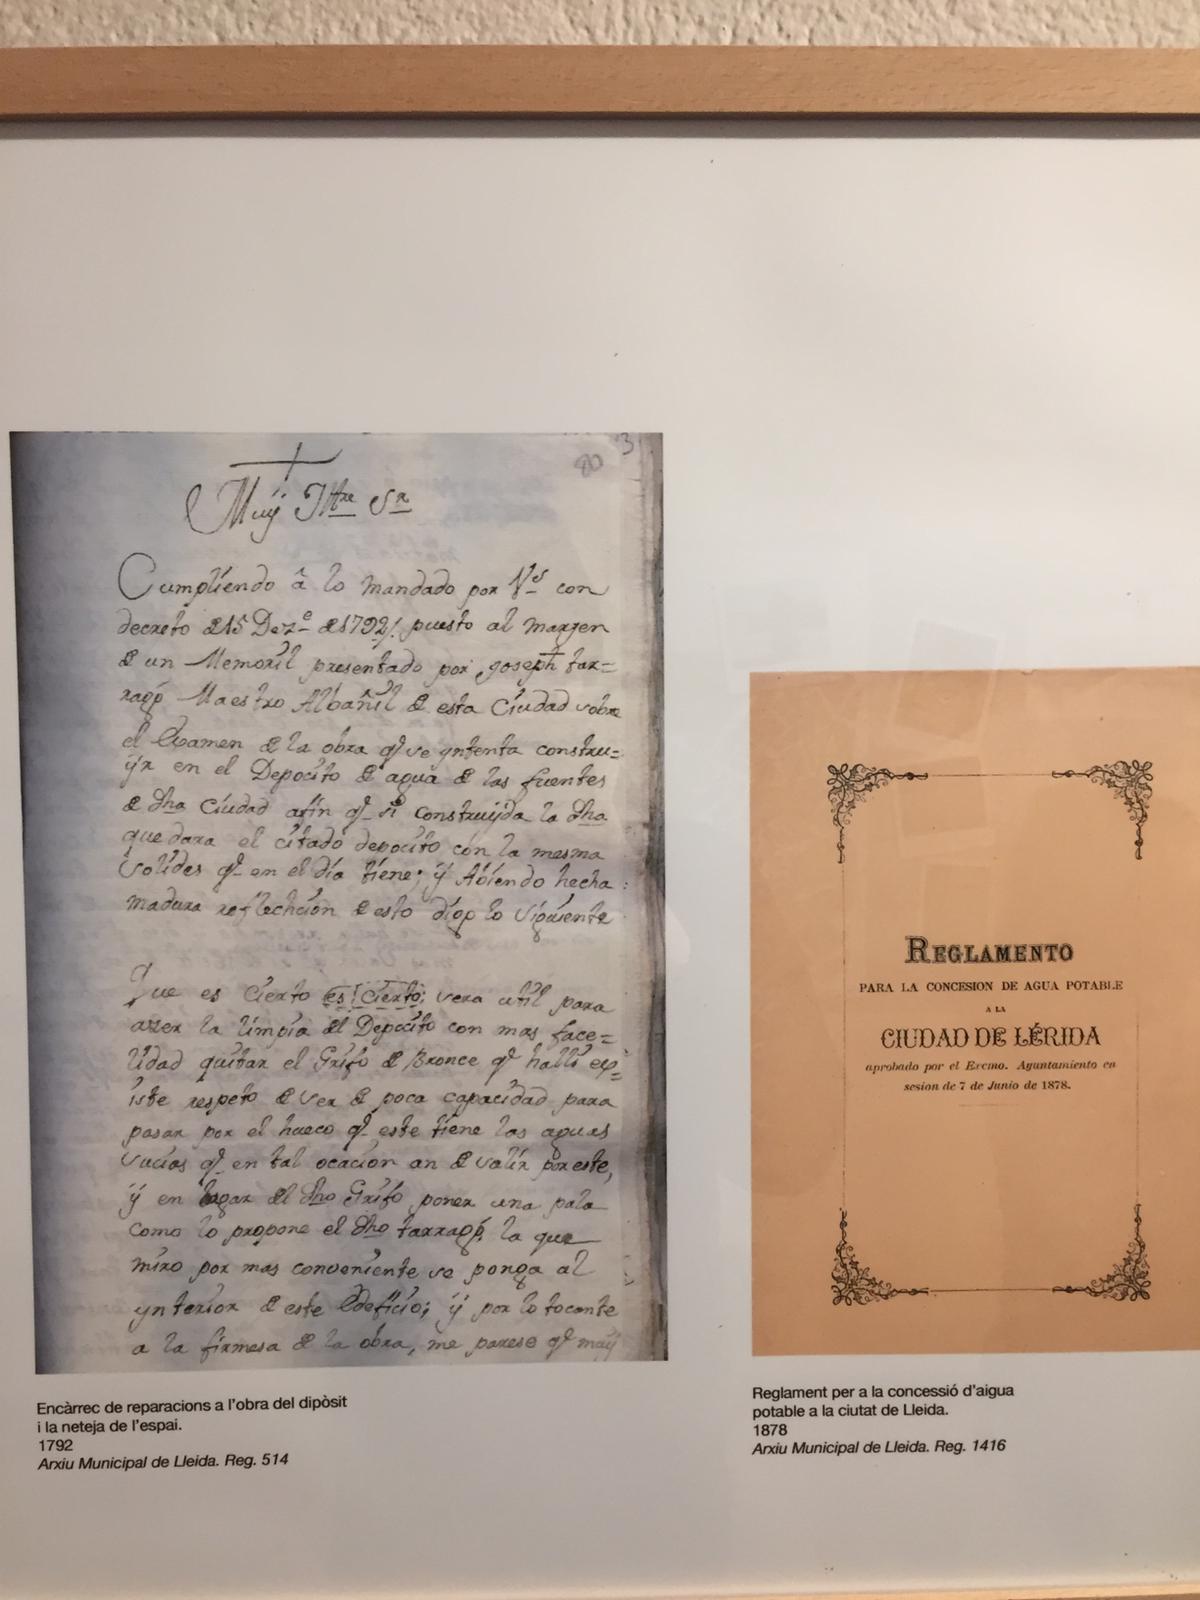 80
3
Muÿ Iltre Sr
Cumpliendo â lo mandado por Vs con
decreto de 15 Dez.e de 1792/. puesto al margen
de un Memoril presentado por Joseph tar=
ragó Maestro Albañil de esta Ciudad sobre
el Examen de la obra q.e se yntenta constru=
ÿr en el Deposito de agua de las fuentes
de dha Ciudad afin q.e si construÿda la dha
quedara el citado deposito con la mesma
solides q.e en el dia tiene; ÿ Abiendo hecha
madura reflechcion de esto digo lo siguiente
Que es cierto es cierto; sera util para
azer la limpia del Deposito con mas face=
lidad quitar el Grifo de Bronce q.e halli ex=
iste respeto de ser de poca capacidad para
pasar por el hueco q.e este tiene las aguas
sucias q.e en tal ocacion an de salir por este,
ÿ en lugar del dho Grifo poner una pala
como lo propone el dho tarragó, la que
miro por mas conveniente se ponga al
ynterior de este Edeficio; ÿ por lo tocante
a la firmesa de la obra, me parese q.e muÿ
Encàrrec de reparacions a l'obra del dipòsit
i la neteja de l'espai.
1792
Arxiu Municipal de Lleida. Reg. 514
REGLAMENTO
PARA LA CONCESION DE AGUA POTABLE
A LA
CIUDAD DE LÉRIDA
aprobado por el Excmo. Ayuntamiento en
sesion de 7 de Junio de 1878.
Reglament per a la concessió d'aigua
potable a la ciutat de Lleida.
1878
Arxiu Municipal de Lleida. Reg. 1416